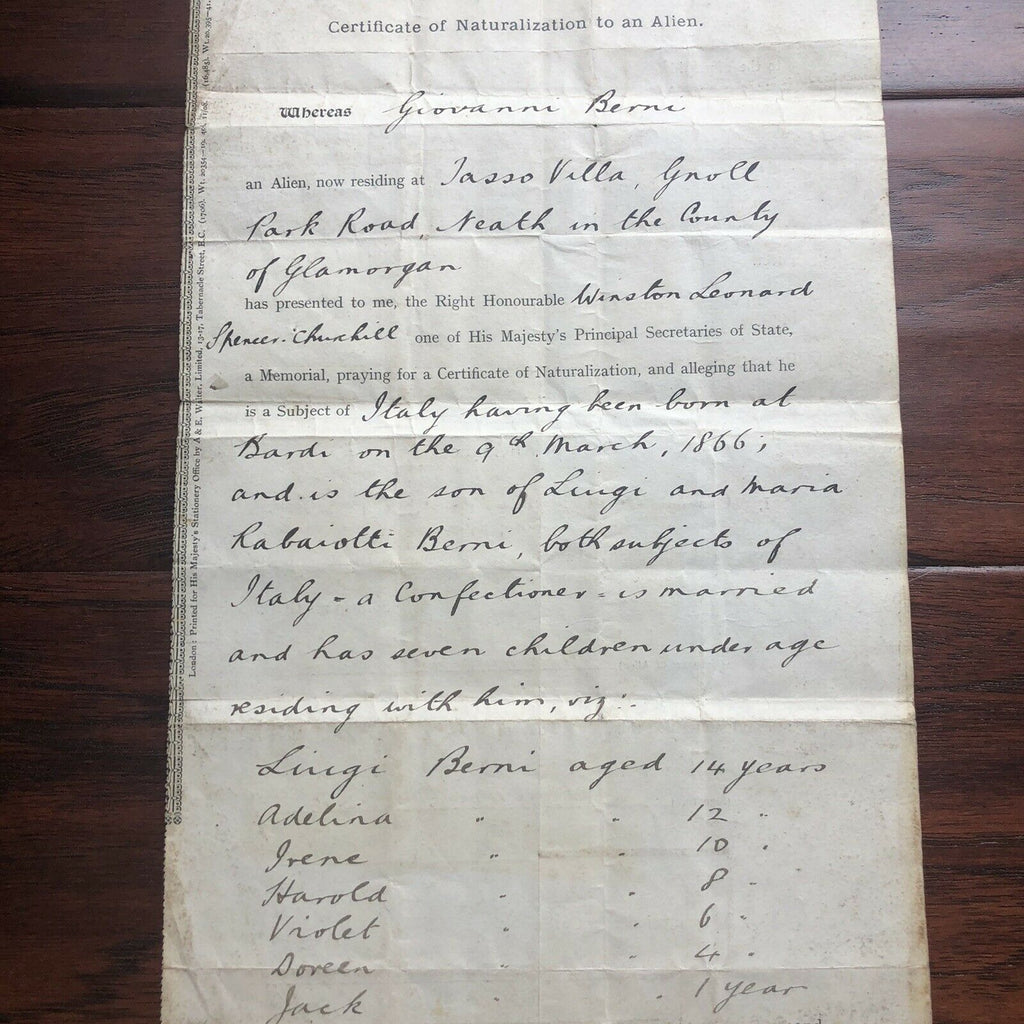 Certificate of Naturalization to an Alien.
Whereas Giovanni Berni
an Alien, now residing at Tasso Villa, Gnoll
Park Road, Neath in the County
of Glamorgan
has presented to me, the Right Honourable Winston Leonard
Spencer-Churchill one of His Majesty's Principal Secretaries of State,
a Memorial, praying for a Certificate of Naturalization, and alleging that he
is a Subject of Italy having been born at
Bardi on the 9th March, 1866;
and is the son of Liugi and Maria
Rabaiotti Berni, both subjects of
Italy - a Confectioner - is married
and has seven children under age
residing with him, viz:-
Liugi Berni aged 14 years
Adelina " " 12 "
Irene " " 10 "
Harold " " 8 "
Violet " " 6 "
Doreen " " 4 "
Jack " " 1 year
London: Printed for His Majesty's Stationery Office by A & E. Walter, Limited, 13-17, Tabernacle Street, E.C. (1706). Wt. 20354—19.